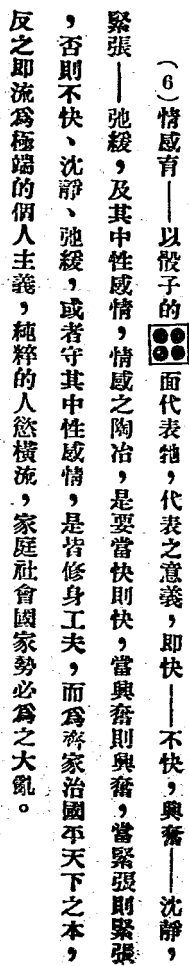 （6）情感育——以骰子的面代表牠，代表之意義，即快——不快，興奮——沈靜，
緊張——弛緩，及其中性感情，情感之陶冶，是要當快則快，當興奮則興奮，當緊張則緊張
，否則不快、沈靜、弛緩，或者守其中性感情，是皆修身工夫，而爲齊家治國平天下之本，
反之即流爲極端的個人主義，純粹的人慾橫流，家庭社會國家勢必爲之大亂。